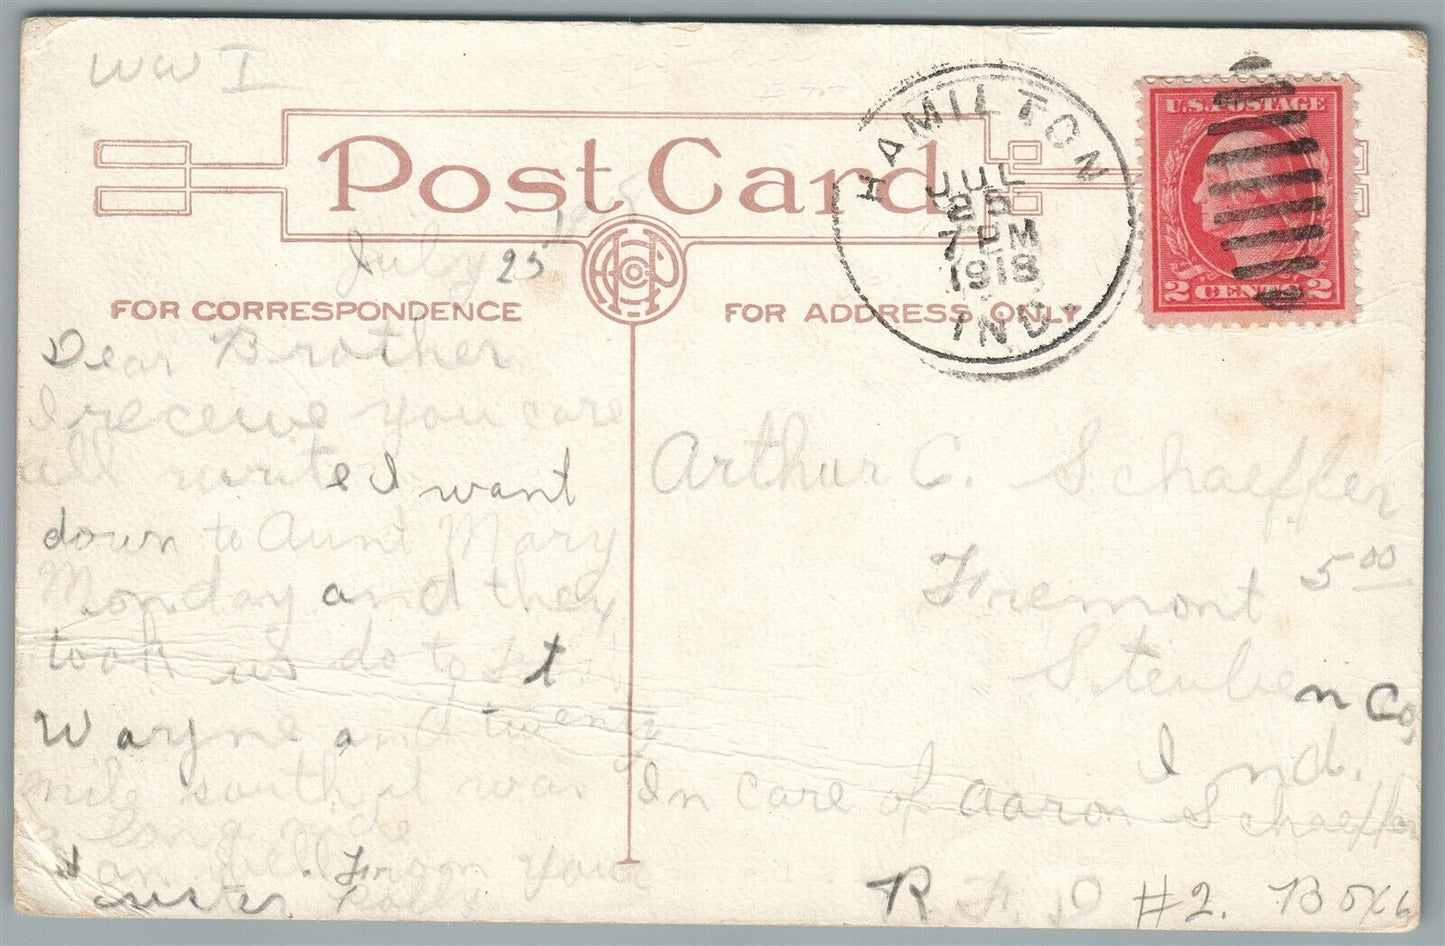 WW I
Post Card
HAMILTON
JUL
25
7 PM
1918
IND
U.S. POSTAGE
2 CENTS 2
July 25
FOR CORRESPONDENCE
FOR ADDRESS ONLY
Dear Brother
I receive you care
all write I want
down to Aunt Mary
Monday and they
took us do to Ft
Wayne and twenty
mile south it was
a long ride
I am well From your
suster
Arthur C. Schaeffer
Fremont
5 00
Steuben Co,
Ind.
In care of Aaron Schaeffer
R F D #2. Box 6